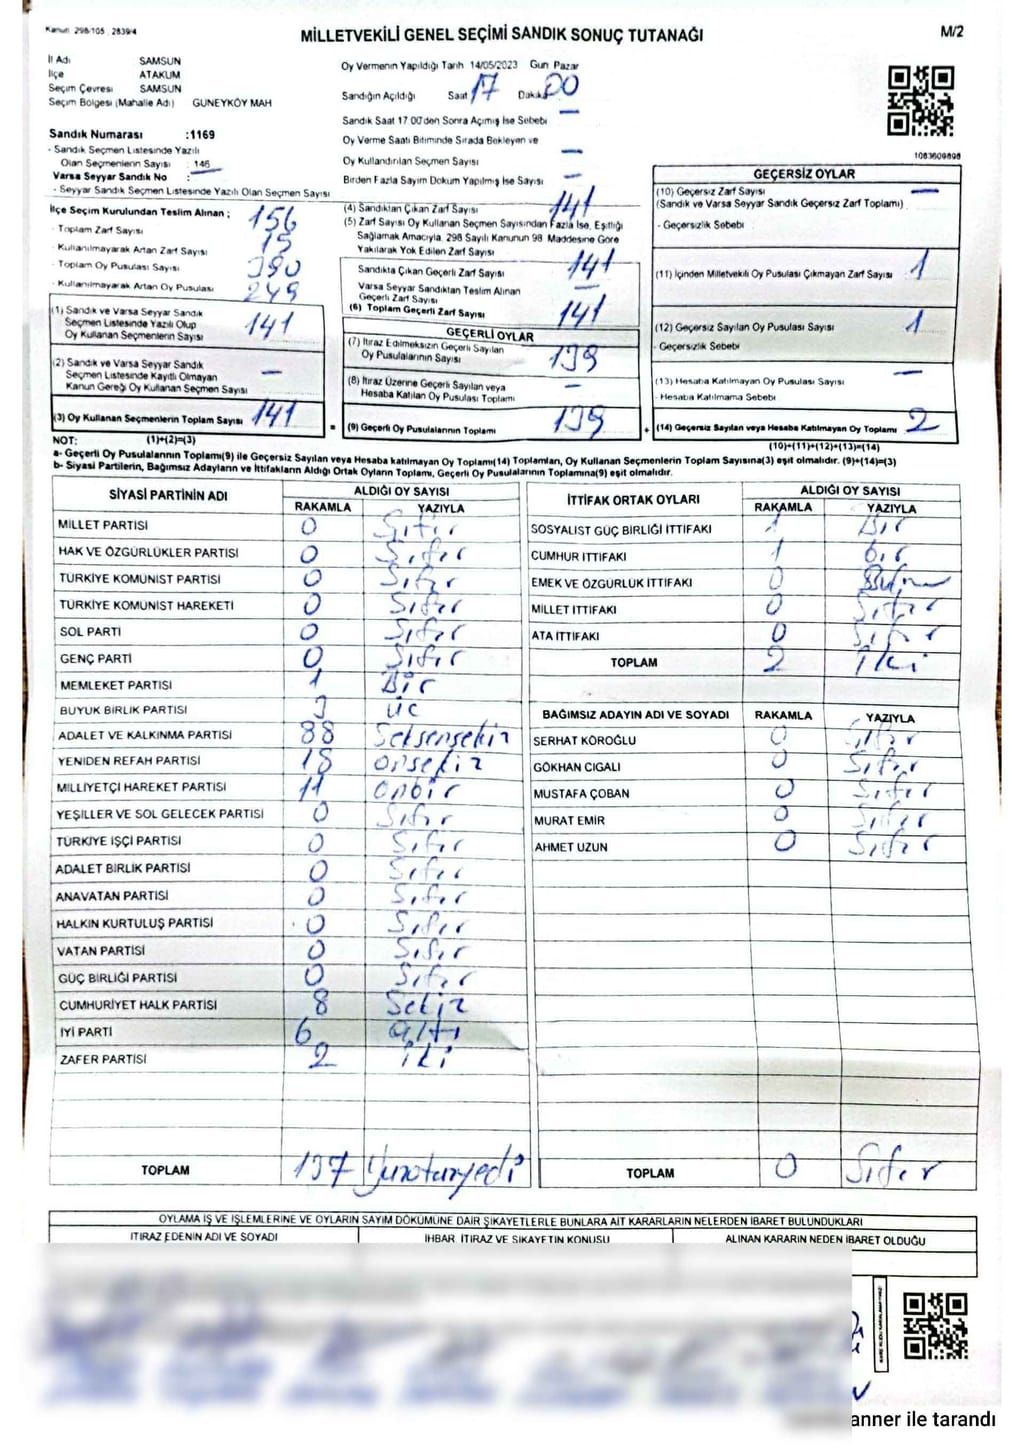 Kanun: 298/105, 2839/4
MİLLETVEKİLİ GENEL SEÇİMİ SANDIK SONUÇ TUTANAĞI
M/2
İl Adı SAMSUN
İlçe ATAKUM
Seçim Çevresi SAMSUN
Seçim Bölgesi (Mahalle Adı) GÜNEYKÖY MAH
Sandık Numarası :1169
- Sandık Seçmen Listesinde Yazılı
Olan Seçmenlerin Sayısı : 146
Varsa Seyyar Sandık No :
- Seyyar Sandık Seçmen Listesinde Yazılı Olan Seçmen Sayısı
Oy Vermenin Yapıldığı Tarih 14/05/2023 Gün Pazar
Sandığın Açıldığı Saat 17 Dakika 00
Sandık Saat 17 00'den Sonra Açılmış İse Sebebi —
Oy Verme Saati Bitiminde Sırada Bekleyen ve
Oy Kullandırılan Seçmen Sayısı —
Birden Fazla Sayım Döküm Yapılmış İse Sayısı —
1083609898
İlçe Seçim Kurulundan Teslim Alınan ;
- Toplam Zarf Sayısı 156
- Kullanılmayarak Artan Zarf Sayısı 15
- Toplam Oy Pusulası Sayısı 390
- Kullanılmayarak Artan Oy Pusulası 249
(1) Sandık ve Varsa Seyyar Sandık
Seçmen Listesinde Yazılı Olup
Oy Kullanan Seçmenlerin Sayısı 141
(2) Sandık ve Varsa Seyyar Sandık
Seçmen Listesinde Kayıtlı Olmayan
Kanun Gereği Oy Kullanan Seçmen Sayısı —
(3) Oy Kullanan Seçmenlerin Toplam Sayısı 141
(4) Sandıktan Çıkan Zarf Sayısı 141
(5) Zarf Sayısı Oy Kullanan Seçmen Sayısından Fazla İse, Eşitliği
Sağlamak Amacıyla, 298 Sayılı Kanunun 98 Maddesine Göre
Yakılarak Yok Edilen Zarf Sayısı
Sandıkta Çıkan Geçerli Zarf Sayısı 141
Varsa Seyyar Sandıktan Teslim Alınan
Geçerli Zarf Sayısı
(6) Toplam Geçerli Zarf Sayısı 141
GEÇERLİ OYLAR
(7) İtiraz Edilmeksizin Geçerli Sayılan
Oy Pusulalarının Sayısı 139
(8) İtiraz Üzerine Geçerli Sayılan veya
Hesaba Katılan Oy Pusulası Toplamı —
= (9) Geçerli Oy Pusulalarının Toplamı 139
GEÇERSİZ OYLAR
(10) Geçersiz Zarf Sayısı —
(Sandık ve Varsa Seyyar Sandık Geçersiz Zarf Toplamı)
- Geçersizlik Sebebi
(11) İçinden Milletvekili Oy Pusulası Çıkmayan Zarf Sayısı 1
(12) Geçersiz Sayılan Oy Pusulası Sayısı 1
- Geçersizlik Sebebi
(13) Hesaba Katılmayan Oy Pusulası Sayısı —
- Hesaba Katılmama Sebebi
+ (14) Geçersiz Sayılan veya Hesaba Katılmayan Oy Toplamı 2
NOT: (1)+(2)=(3)
(10)+(11)+(12)+(13)=(14)
a- Geçerli Oy Pusulalarının Toplamı(9) ile Geçersiz Sayılan veya Hesaba katılmayan Oy Toplamı(14) Toplamları, Oy Kullanan Seçmenlerin Toplam Sayısına(3) eşit olmalıdır. (9)+(14)=(3)
b- Siyasi Partilerin, Bağımsız Adayların ve İttifakların Aldığı Ortak Oyların Toplamı, Geçerli Oy Pusulalarının Toplamına(9) eşit olmalıdır.
SİYASİ PARTİNİN ADI
ALDIĞI OY SAYISI
RAKAMLA YAZIYLA
MİLLET PARTİSİ 0 Sıfır
HAK VE ÖZGÜRLÜKLER PARTİSİ 0 Sıfır
TÜRKİYE KOMÜNİST PARTİSİ 0 Sıfır
TÜRKİYE KOMÜNİST HAREKETİ 0 Sıfır
SOL PARTİ 0 Sıfır
GENÇ PARTİ 0 Sıfır
MEMLEKET PARTİSİ 1 Bir
BÜYÜK BİRLİK PARTİSİ 3 üç
ADALET VE KALKINMA PARTİSİ 88 Seksensekiz
YENİDEN REFAH PARTİSİ 18 onsekiz
MİLLİYETÇİ HAREKET PARTİSİ 11 onbir
YEŞİLLER VE SOL GELECEK PARTİSİ 0 Sıfır
TÜRKİYE İŞÇİ PARTİSİ 0 Sıfır
ADALET BİRLİK PARTİSİ 0 Sıfır
ANAVATAN PARTİSİ 0 Sıfır
HALKIN KURTULUŞ PARTİSİ 0 Sıfır
VATAN PARTİSİ 0 Sıfır
GÜÇ BİRLİĞİ PARTİSİ 0 Sıfır
CUMHURİYET HALK PARTİSİ 8 Sekiz
İYİ PARTİ 6 altı
ZAFER PARTİSİ 2 iki
TOPLAM 137 Yüzotuzyedi
İTTİFAK ORTAK OYLARI
ALDIĞI OY SAYISI
RAKAMLA YAZIYLA
SOSYALİST GÜÇ BİRLİĞİ İTTİFAKI 1 Bir
CUMHUR İTTİFAKI 1 bir
EMEK VE ÖZGÜRLÜK İTTİFAKI 0
MİLLET İTTİFAKI 0 Sıfır
ATA İTTİFAKI 0 Sıfır
TOPLAM 2 iki
BAĞIMSIZ ADAYIN ADI VE SOYADI RAKAMLA YAZIYLA
SERHAT KÖROĞLU 0 Sıfır
GÖKHAN CIGALI 0 Sıfır
MUSTAFA ÇOBAN 0 Sıfır
MURAT EMİR 0 Sıfır
AHMET UZUN 0 Sıfır
TOPLAM 0 Sıfır
OYLAMA İŞ VE İŞLEMLERİNE VE OYLARIN SAYIM DÖKÜMÜNE DAİR ŞİKAYETLERLE BUNLARA AİT KARARLARIN NELERDEN İBARET BULUNDUKLARI
İTİRAZ EDENİN ADI VE SOYADI İHBAR, İTİRAZ VE ŞİKAYETİN KONUSU ALINAN KARARIN NEDEN İBARET OLDUĞU
anner ile tarandı